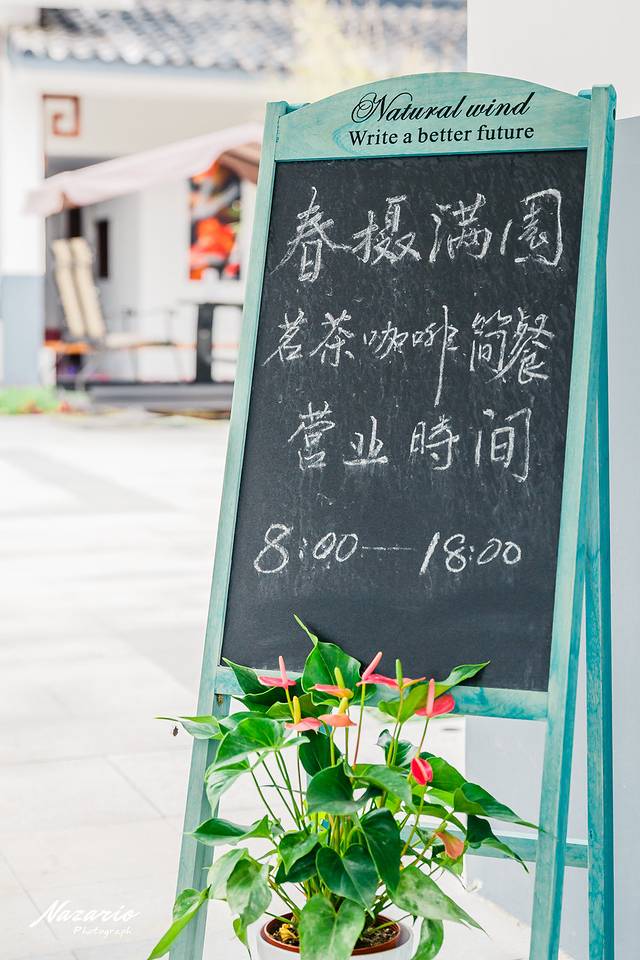 Natural wind
Write a better future
春摄满園
茗茶咖啡简餐
营业時间
8:00—18:00
Nazario
Photograph